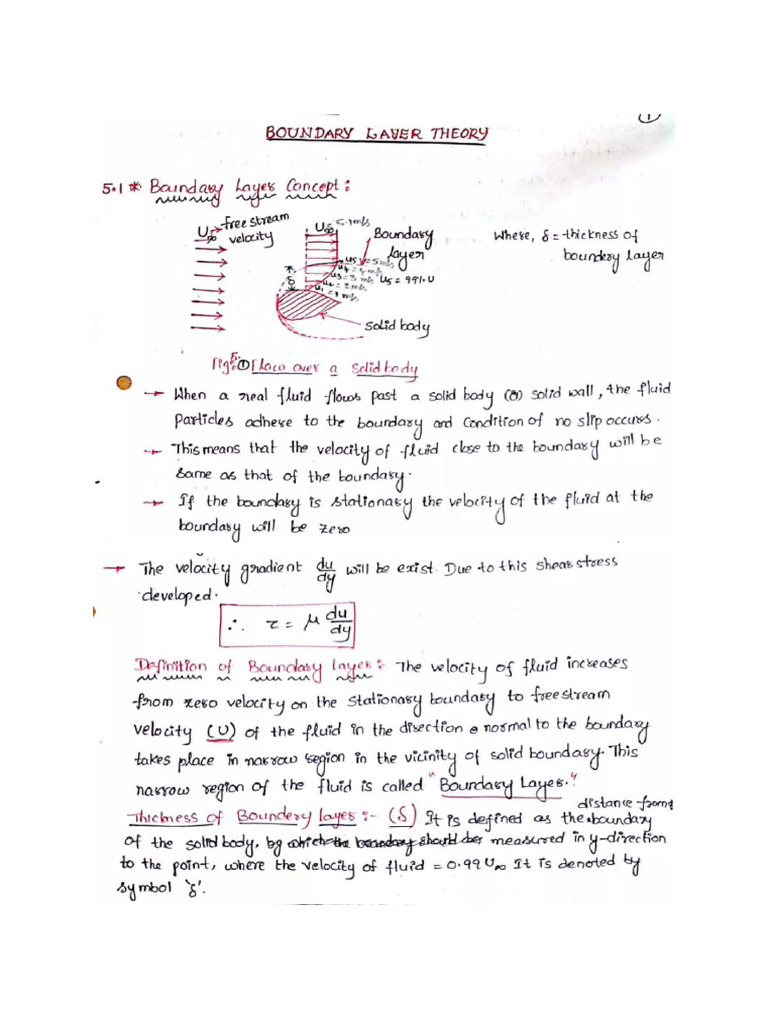 1
BOUNDARY LAYER THEORY
5.1 * Boundary Layer Concept :
U∞ free stream
velocity
U∞ 5.1 m/s
Boundary
layer
u5 = 5 m/s
u4 = 4 m/s
u3 = 3 m/s
u2 = 2 m/s
u1 = 1 m/s
U5 = 99%.U
δ
Solid body
Where, δ = thickness of
boundery layer
Fig 5.1 Flow over a Solid body
→ When a real fluid flows past a solid body (or) solid wall, the fluid
particles adhere to the boundary and condition of no slip occurs.
→ This means that the velocity of fluid close to the boundary will be
same as that of the boundary.
→ If the boundary is stationary the velocity of the fluid at the
boundary will be zero
→ The velocity gradient du/dy will be exist. Due to this shear stress
developed.
∴ τ = μ du/dy
Definition of Boundary layer :- The velocity of fluid increases
from zero velocity on the stationary boundary to free stream
velocity (U) of the fluid in the direction normal to the boundary
takes place in narrow region in the vicinity of solid boundary. This
narrow region of the fluid is called "Boundary Layer."
Thickness of Boundery layer :- (δ) It is defined as the distance from boundary
of the solid body, by which the boundary should be measured in y-direction
to the point, where the velocity of fluid = 0.99 U∞ It is denoted by
symbol 'δ'.